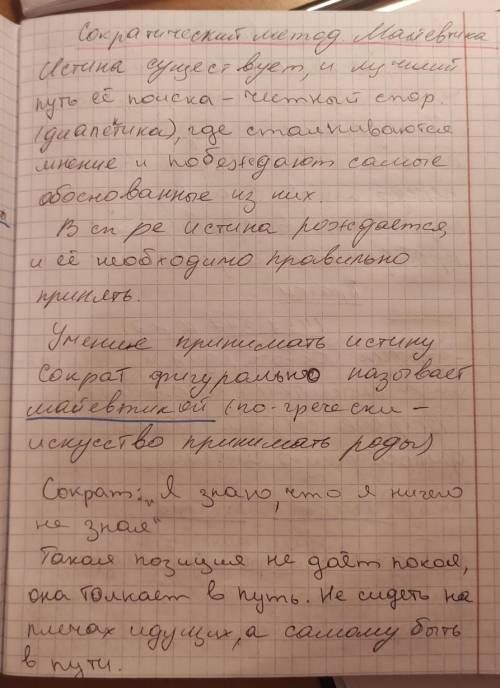 Сократический метод. Майевтика
Истина существует, и лучший
путь её поиска - честный спор.
(диалектика), где сталкиваются
мнение и побеждают самые
обоснованные из них.
В сп ре истина рождается,
и её необходимо правильно
принять.
Умение принимать истину
Сократ фигурально называет
майевтикой (по-гречески -
искусство принимать роды)
Сократ: „Я знаю, что я ничего
не знаю“
Такая позиция не даёт покоя,
она толкает в путь. Не сидеть на
плечах идущих, а самому быть
в пути.